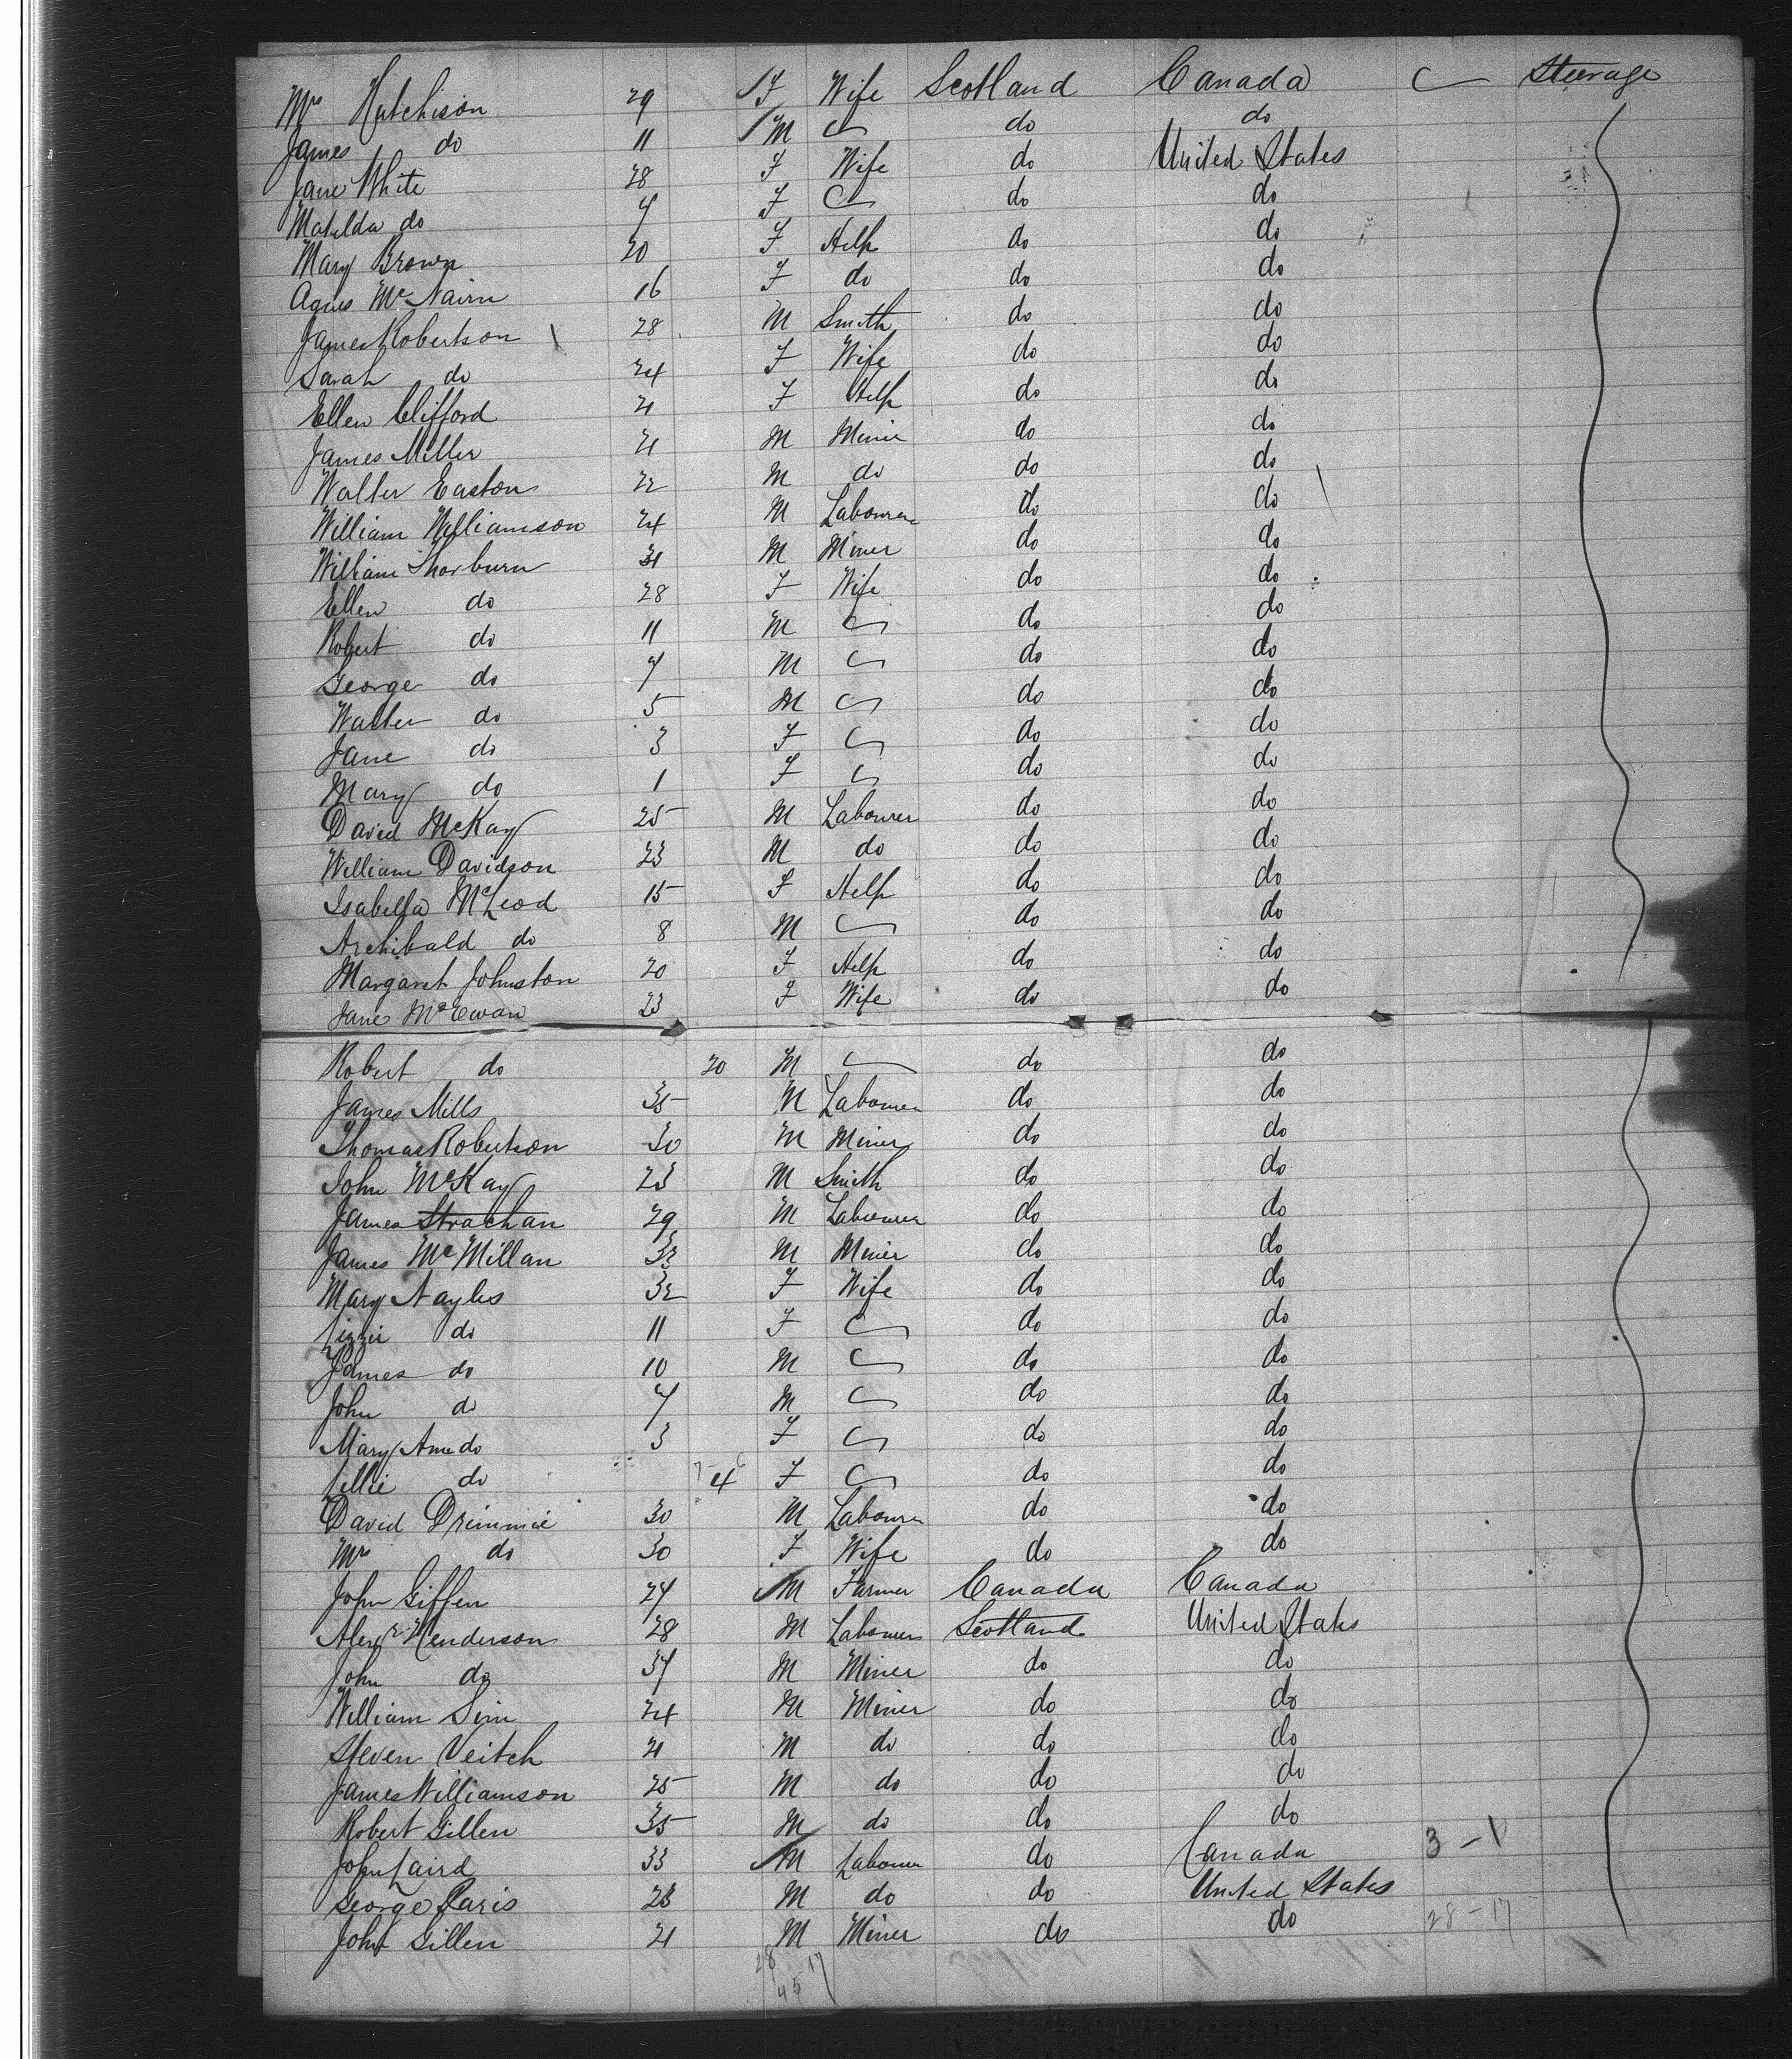 Mrs Hutchison 29 F Wife Scotland Canada Steerage
James do 11 M do do
Jane White 28 F Wife do United States
Matilda do 7 F do do
Mary Brown 20 F Help do do
Agnes McNairn 16 F do do do
James Robertson 28 M Smith do do
Sarah do 24 F Wife do do
Ellen Clifford 21 F Help do do
James Miller 21 M Miner do do
Walter Easton 22 M do do do
William Williamson 24 M Labourer do do
William Thorburn 31 M Miner do do
Ellen do 28 F Wife do do
Robert do 11 M do do
George do 7 M do do
Walter do 5 M do do
Jane do 3 F do do
Mary do 1 F do do
David McKay 25 M Labourer do do
William Davidson 23 M do do do
Isabella McLeod 15 F Help do do
Archibald do 8 M do do
Margaret Johnston 20 F Help do do
Jane McEwan 23 F Wife do do
Robert do 20 M do do
James Mills 35 M Labourer do do
Thomas Robertson 30 M Miner do do
John McKay 23 M Smith do do
James Strachan 29 M Labourer do do
James McMillan 32 M Miner do do
Mary Nayles 32 F Wife do do
Lizzie do 11 F do do
James do 10 M do do
John do 7 M do do
Mary Ann do 3 F do do
Lillie do 4 F do do
David Drimmie 30 M Labourer do do
Mrs do 30 F Wife do do
John Giffen 27 M Farmer Canada Canada
Alexr Henderson 28 M Labourer Scotland United States
John do 37 M Miner do do
William Sim 24 M Miner do do
Steven Veitch 21 M do do do
James Williamson 25 M do do do
Robert Gillen 35 M do do do
John Laird 33 M Labourer do Canada 3-1
George Paris 23 M do do United States
John Gillen 21 M Miner do do 28-17
28 17
45